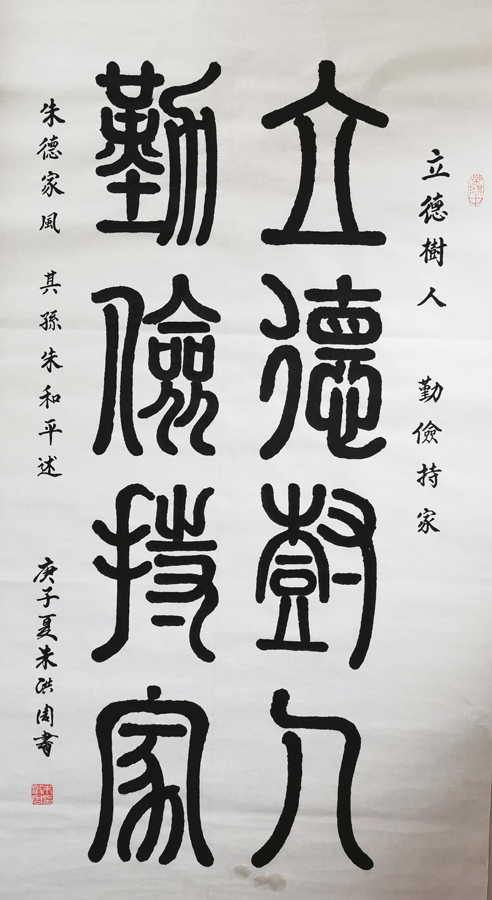 立德樹人 勤儉持家
立德樹人
勤儉持家
朱德家風 其孫朱和平述
庚子夏朱洪周書